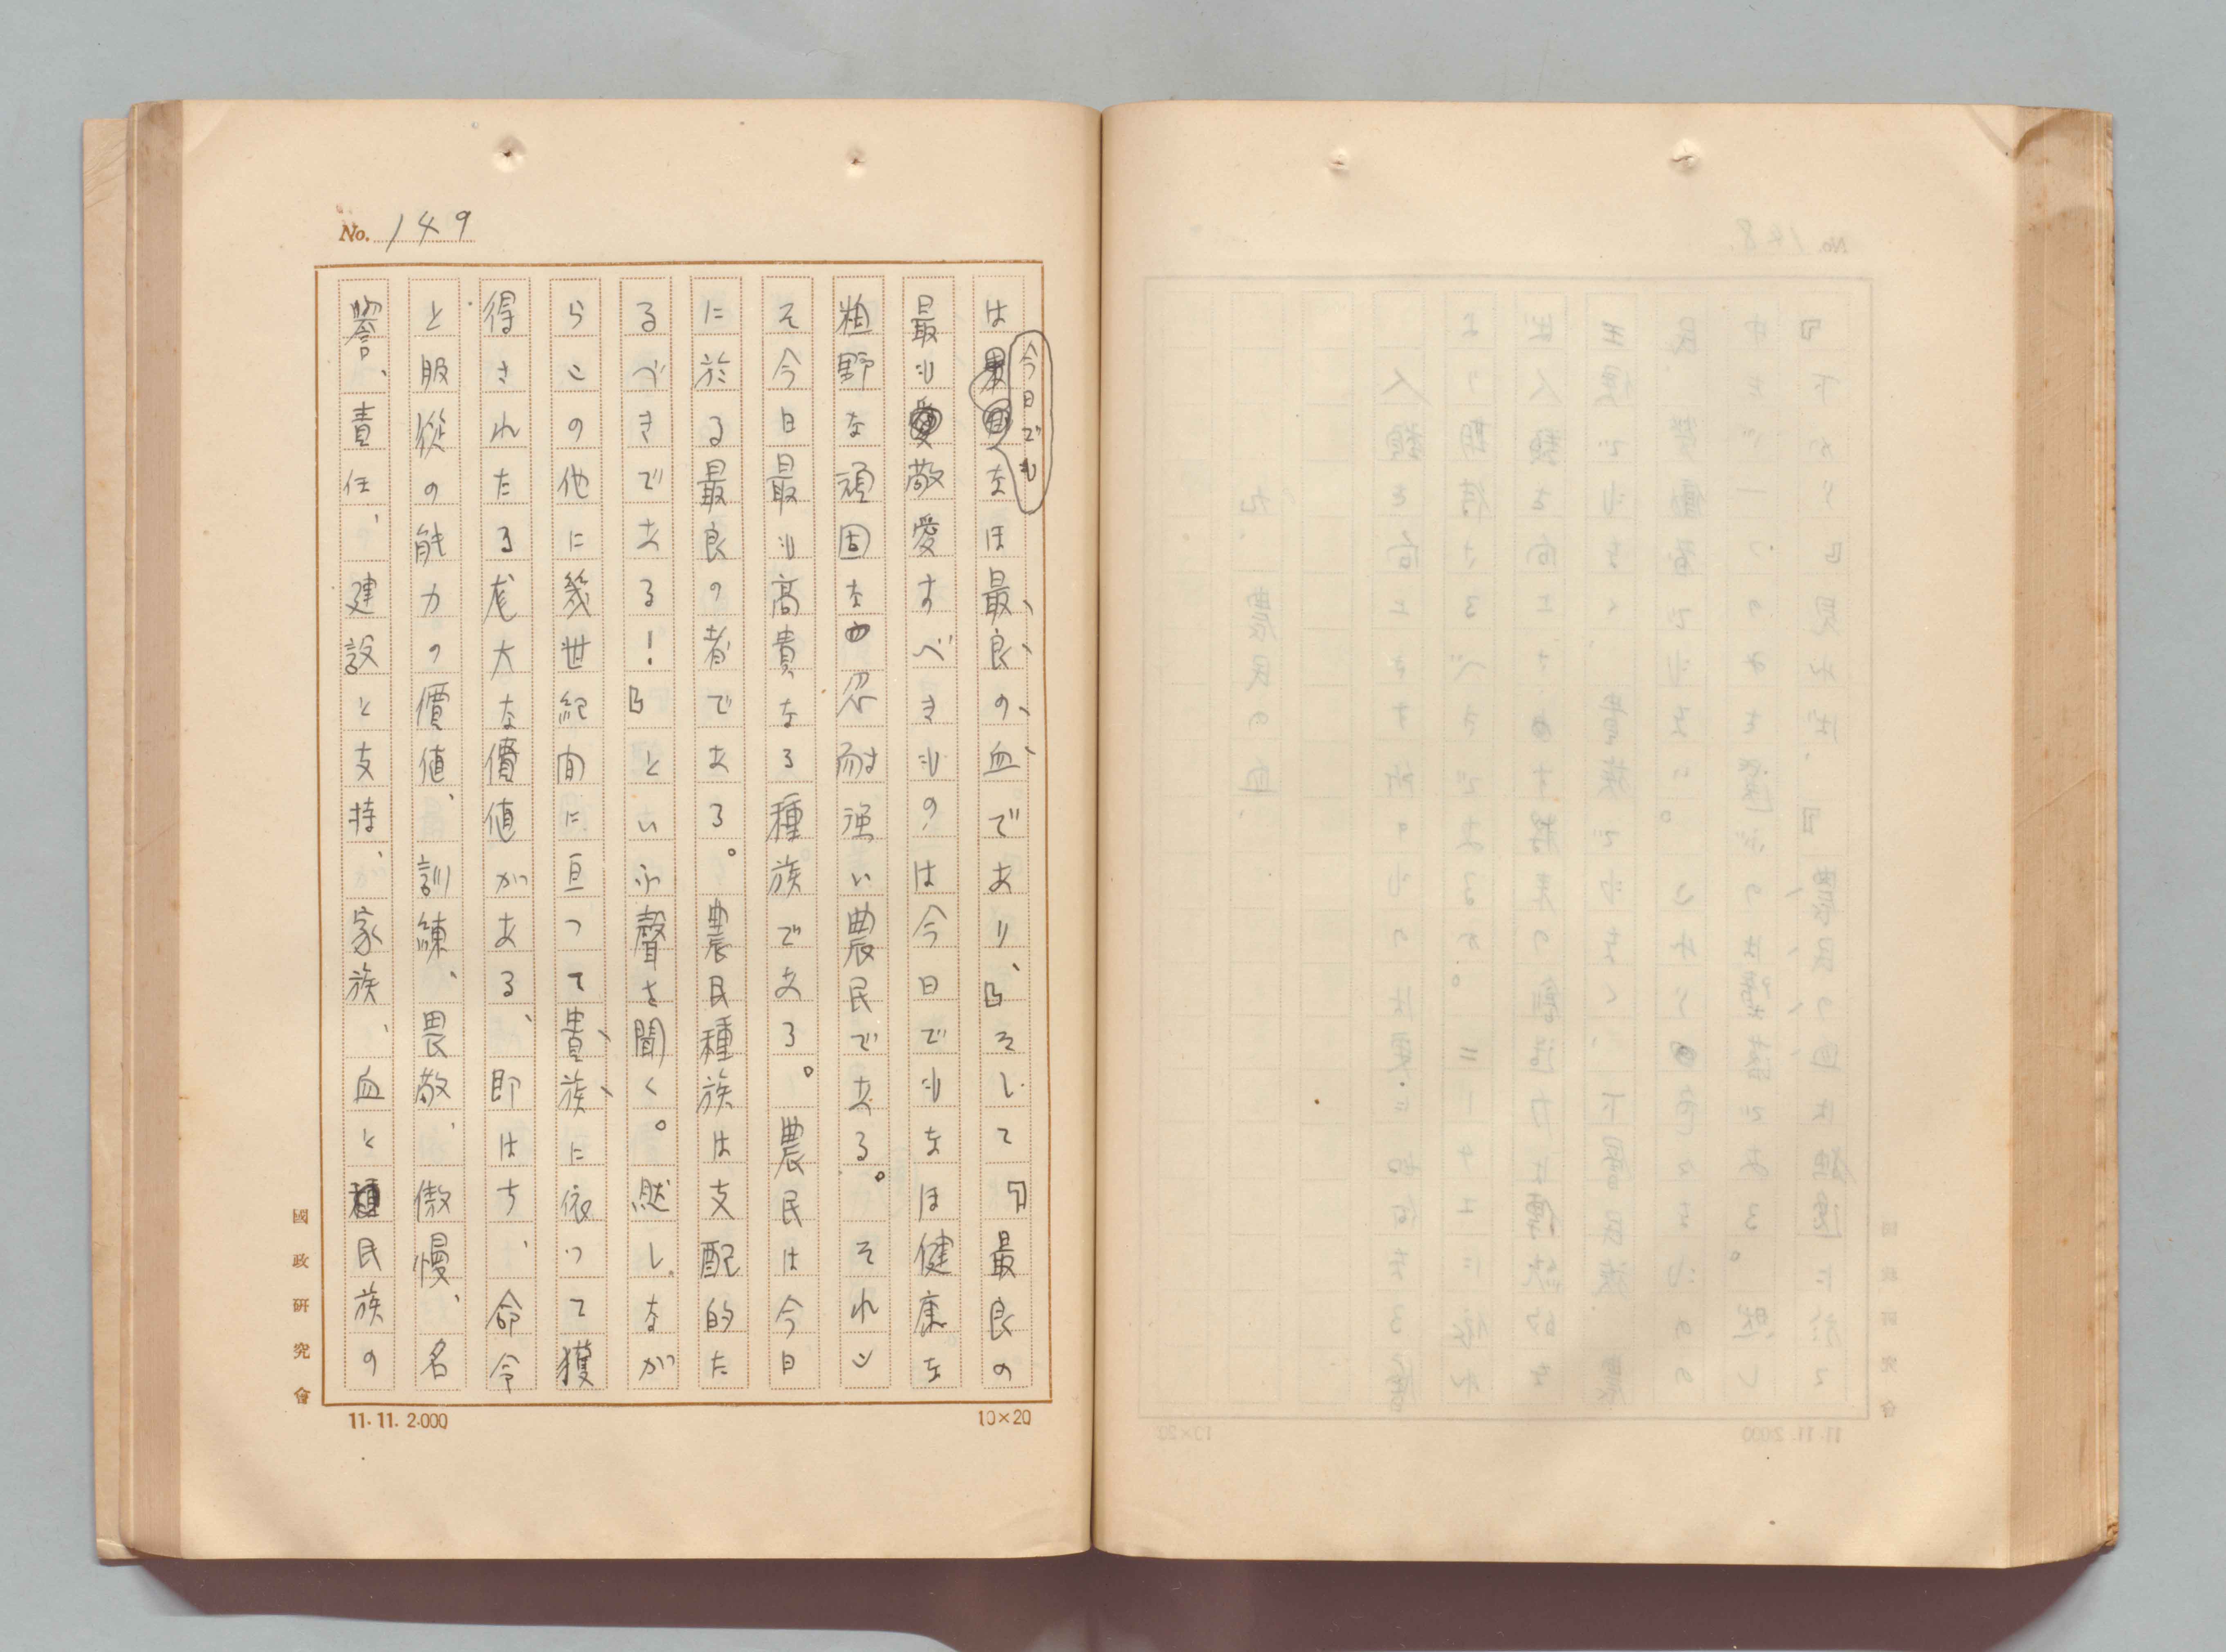 No. 149
今日でも
は なほ最良の血であり、』そして『最良の
最も敬愛すべきものは今日でもなほ健康な
粗野な頑固な忍耐強い農民である。それこ
そ今日最も高貴なる種族である。農民は今日
に於る最良の者である。農民種族は支配的た
るべきである!』といふ聲を聞く。然しなが
らこの他に幾世紀間に亘つて貴族に依つて獲
得されたる尨大な價値がある、即はち、命令
と服從の能力の價値、訓練、畏敬、傲慢、名
譽、責任、建設と支持、家族、血と民族の
國政研究會
11.11.2.000
10×20